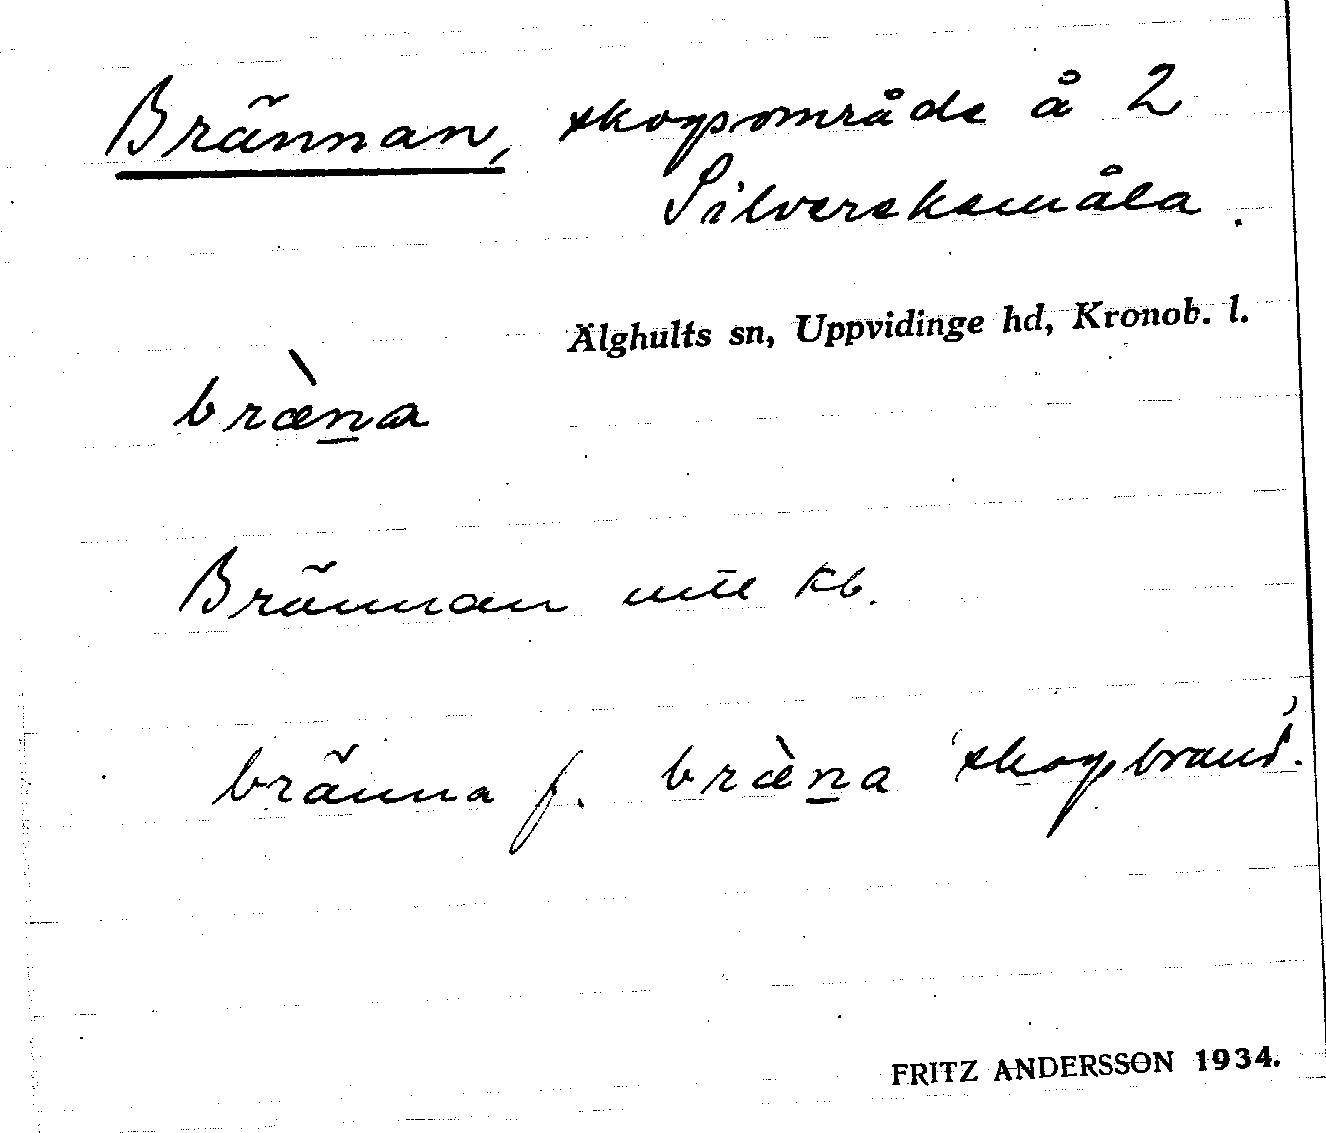 Brännan, skogsområde å 2
Silverekemåla.
Älghults sn, Uppvidinge hd, Kronob. l.
bræ̀na
Brännan Kb.
bränna f. bræ̀na 'skogsbrand'.
FRITZ ANDERSSON 1934.